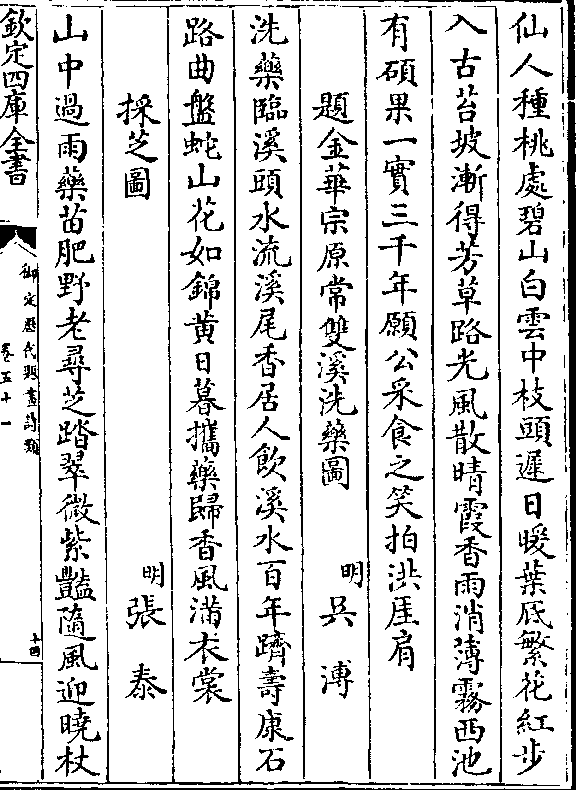 仙人種桃處碧山白雲中枝頭遲日暖葉底繁花紅步
入古苔坡漸得芳草路光風散晴霞香雨消薄霧西池
有碩果一實三千年願公采食之笑拍洪厓肩
題金華宗原常雙溪洗藥圖 明 吳 溥
洗藥臨溪頭水流溪尾香居人飲溪水百年躋壽康石
路曲盤蛇山花如錦黄日暮攜藥歸香風滿衣裳
採芝圖 明 張 泰
山中過雨藥苗肥野老尋芝踏翠微紫豔隨風迎曉杖
欽定四庫全書
御定歷代題畫詩類
卷五十一
十四